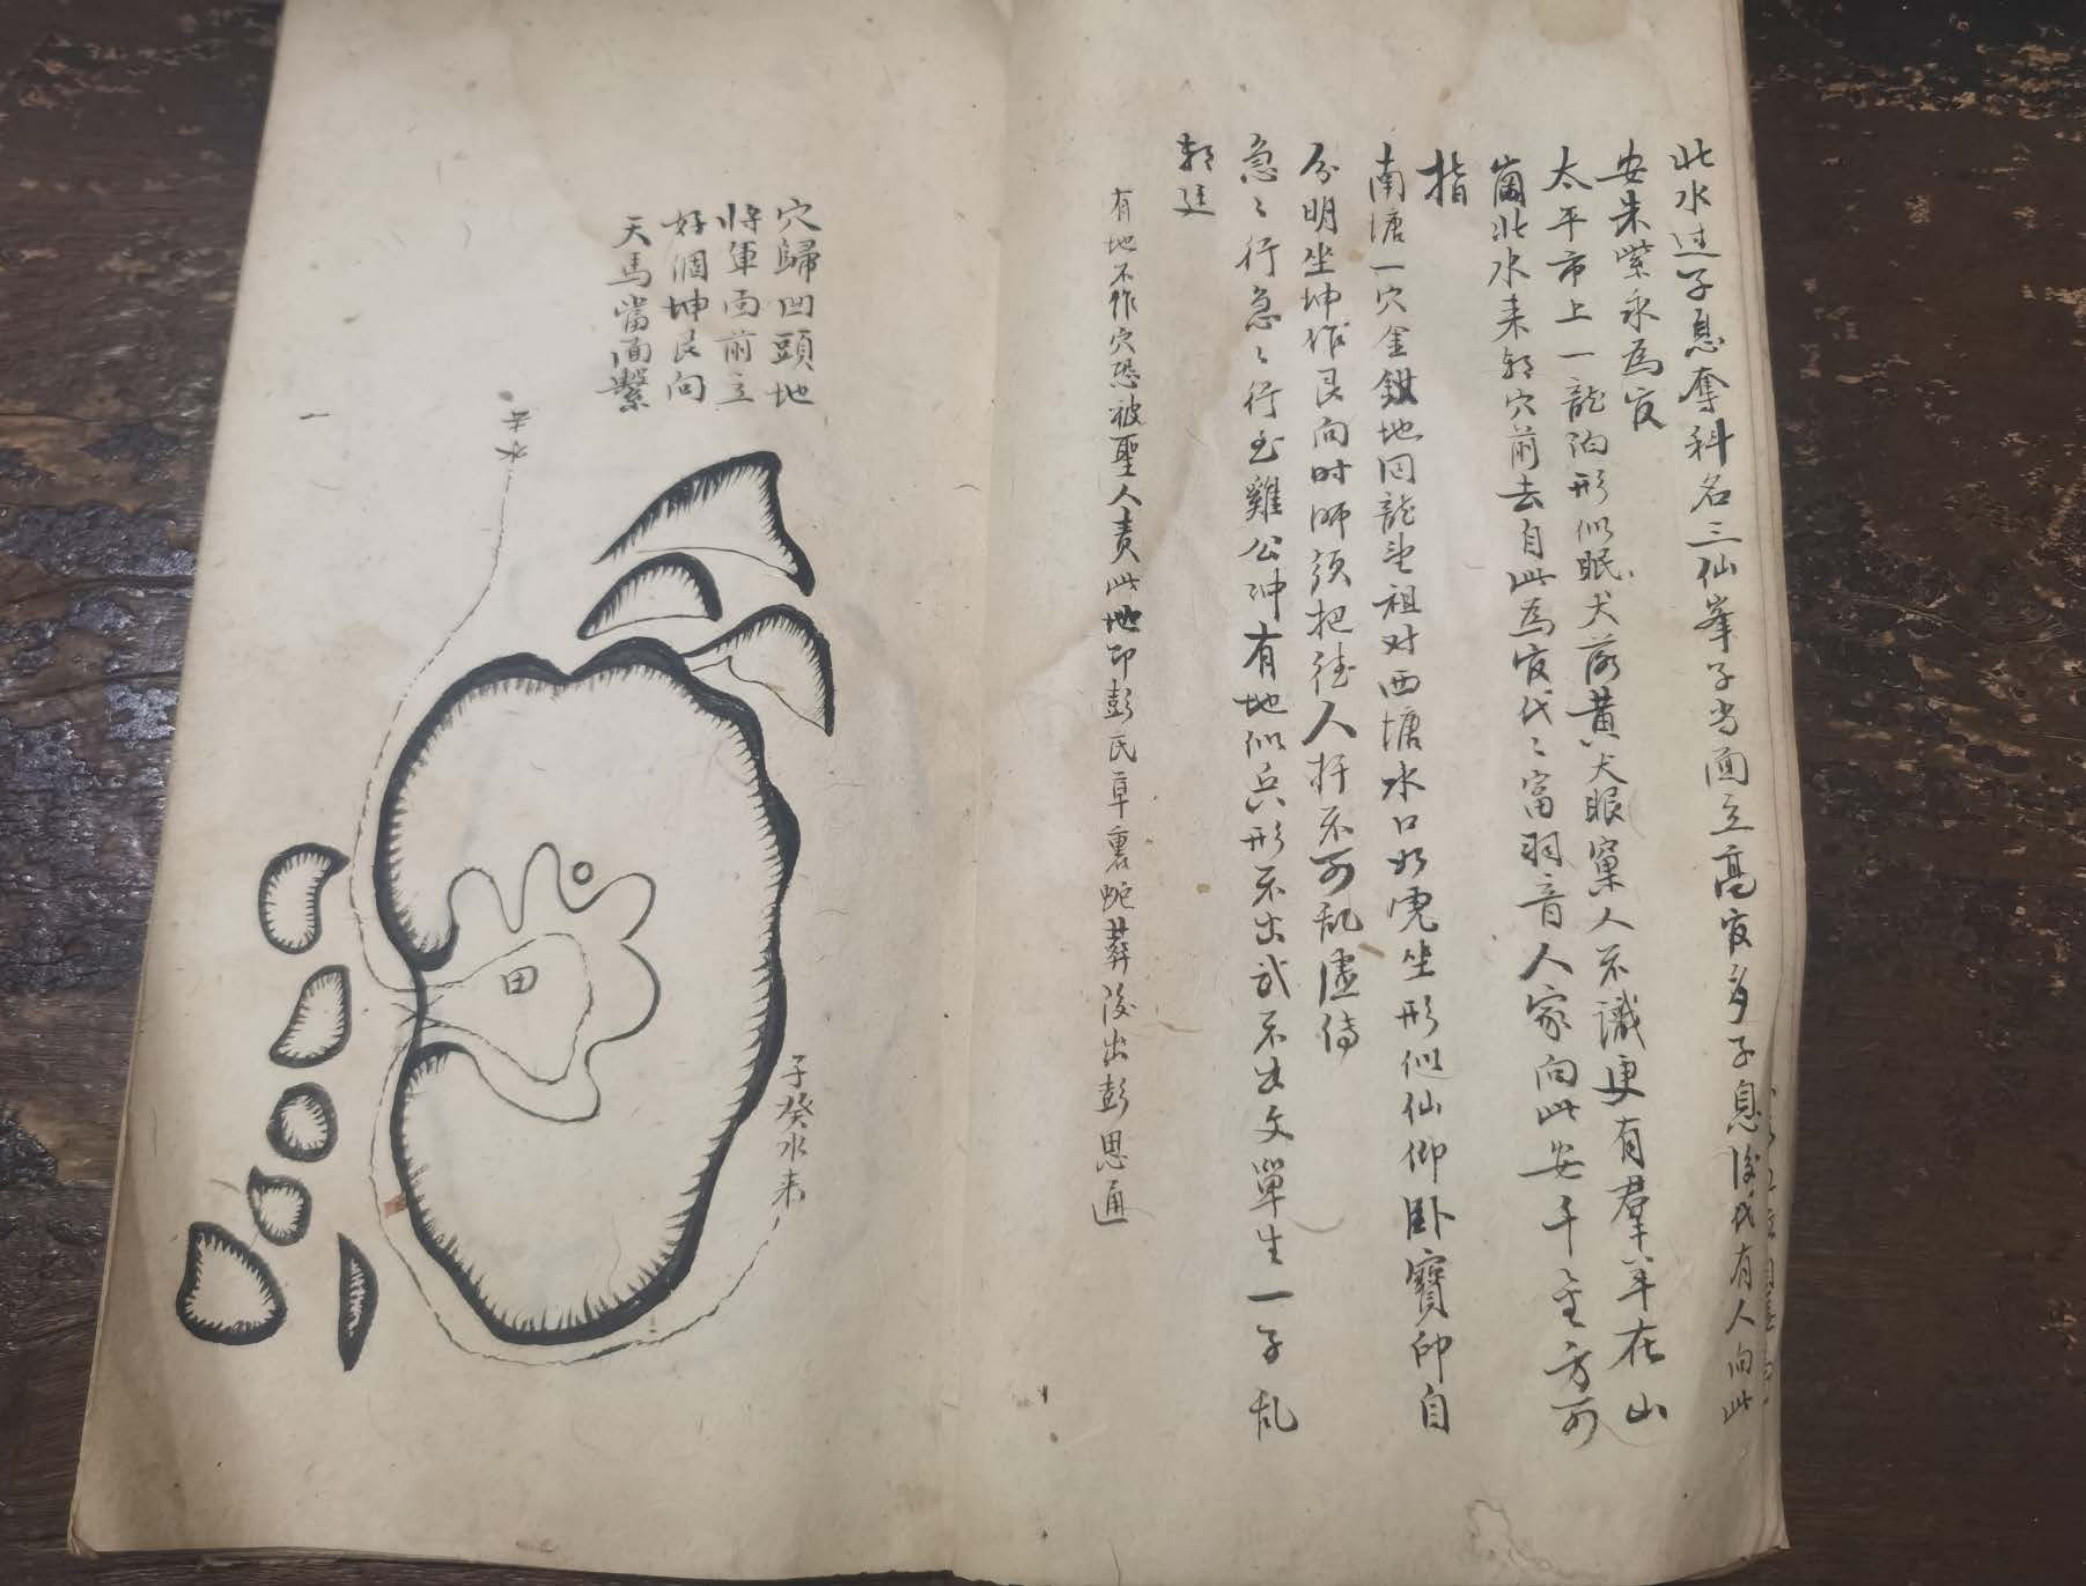 此水过子息奪科名三仙峯子当面立髙官多子息後代有人向此
安朱紫永為官
太平市上一龍泊形似眠犬落黄犬眼窠人不識更有群羊在山
崗北水来朝穴前去自此為官代〻富羽音人家向此安千金方可
指
南塘一穴金釵地囘龍望祖对西塘水口形坐形似仙仰卧寶印自
分明坐坤作艮向时师須把徃人扦不可乱虚傳
急〻行急〻行玉雞公冲有地似兵形不出武不出文單生一子乱
朝廷
有地不作穴恐被聖人責此地即彭氏草裏蛇葬後出彭思通
穴歸凹頭地
將軍面前立
好個坤艮向
天馬當面繫
水
田
子癸水来